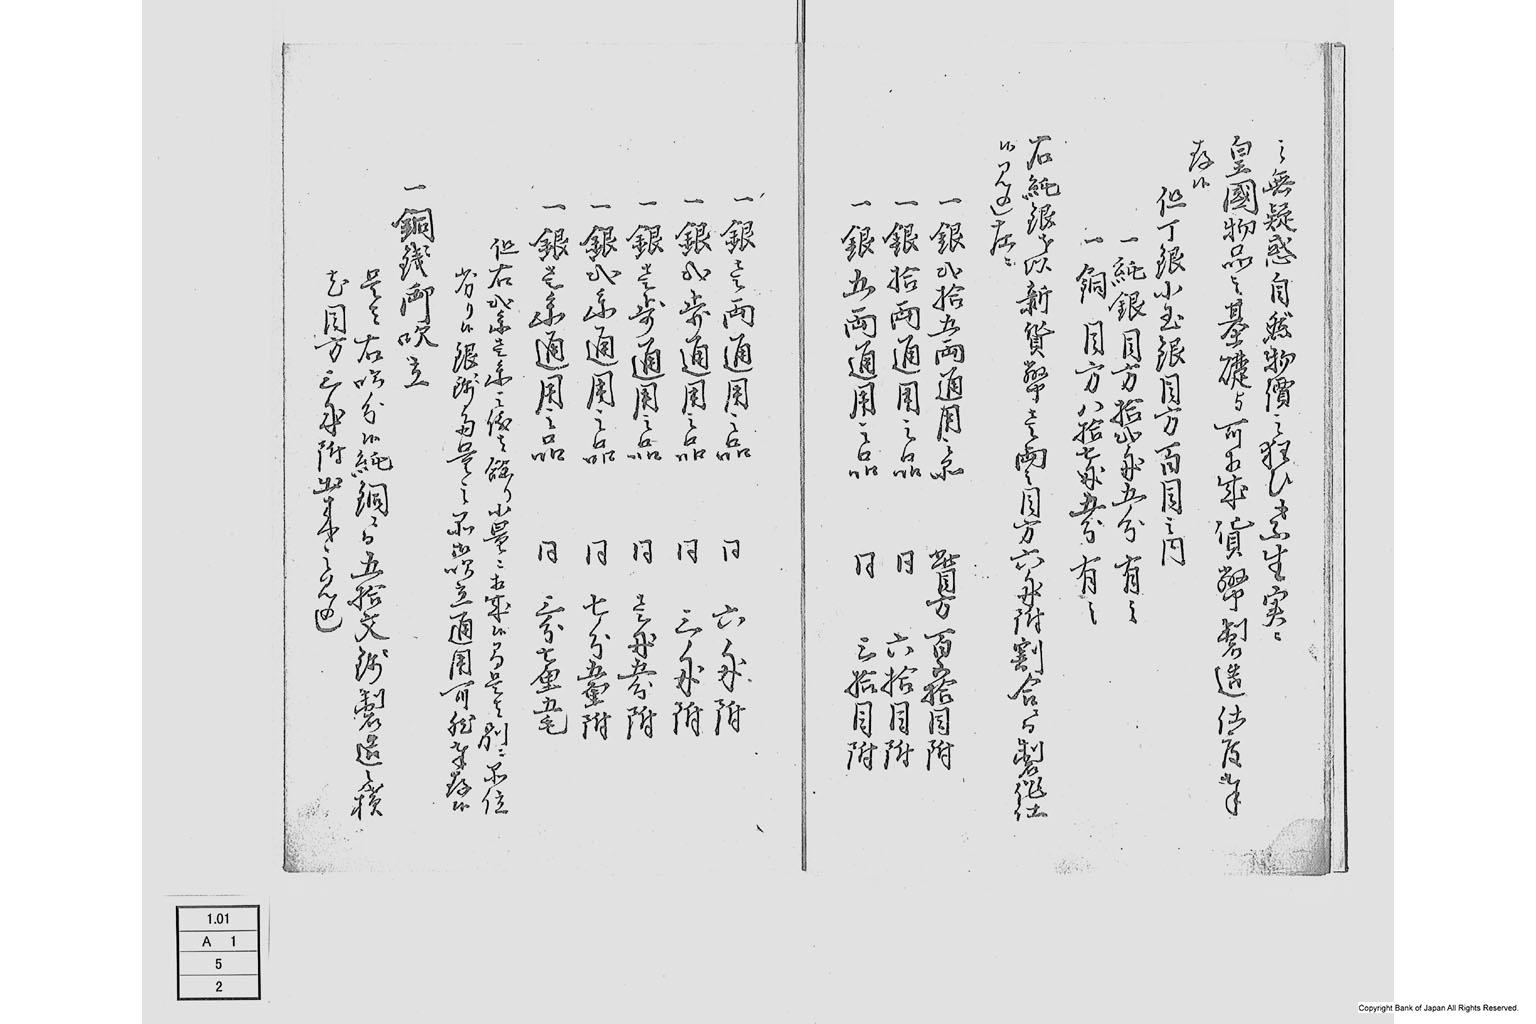 之無疑惑自然物價之狂ひも不生実ニ
皇國物品之基礎与可相成貨幣製造仕度奉
存候
但丁銀小玉銀目方百目之内
一純銀目方拾弐匁五分有之
一銅目方八拾七匁五分有之
右純銀を以新貨幣壱両之目方六匁附割合ニ而製作仕
候見込左ニ
一銀弐拾五両通用之品 此目方 百五拾目附
一銀拾両通用之品 同 六拾目附
一銀五両通用之品 同 三拾目附
一銀壱両通用之品 同 六匁附
一銀弐歩通用之品 同 三匁附
一銀壱歩通用之品 同 壱匁五分附
一銀弐朱通用之品 同 七分五厘附
一銀壱朱通用之品 同 三分七厘五毛
但右弐朱壱朱之儀者餘り小量ニ相成候間是者別ニ品位
劣り候銀ニ而量之品吹立通用可然奉存候
一銅銭御吹立
是者右吹分候純銅ニ而五拾文銭製造之積
尤目方三匁附出来之見込
1.01
A 1
5
2
Copyright Bank of Japan All Rights Reserved.